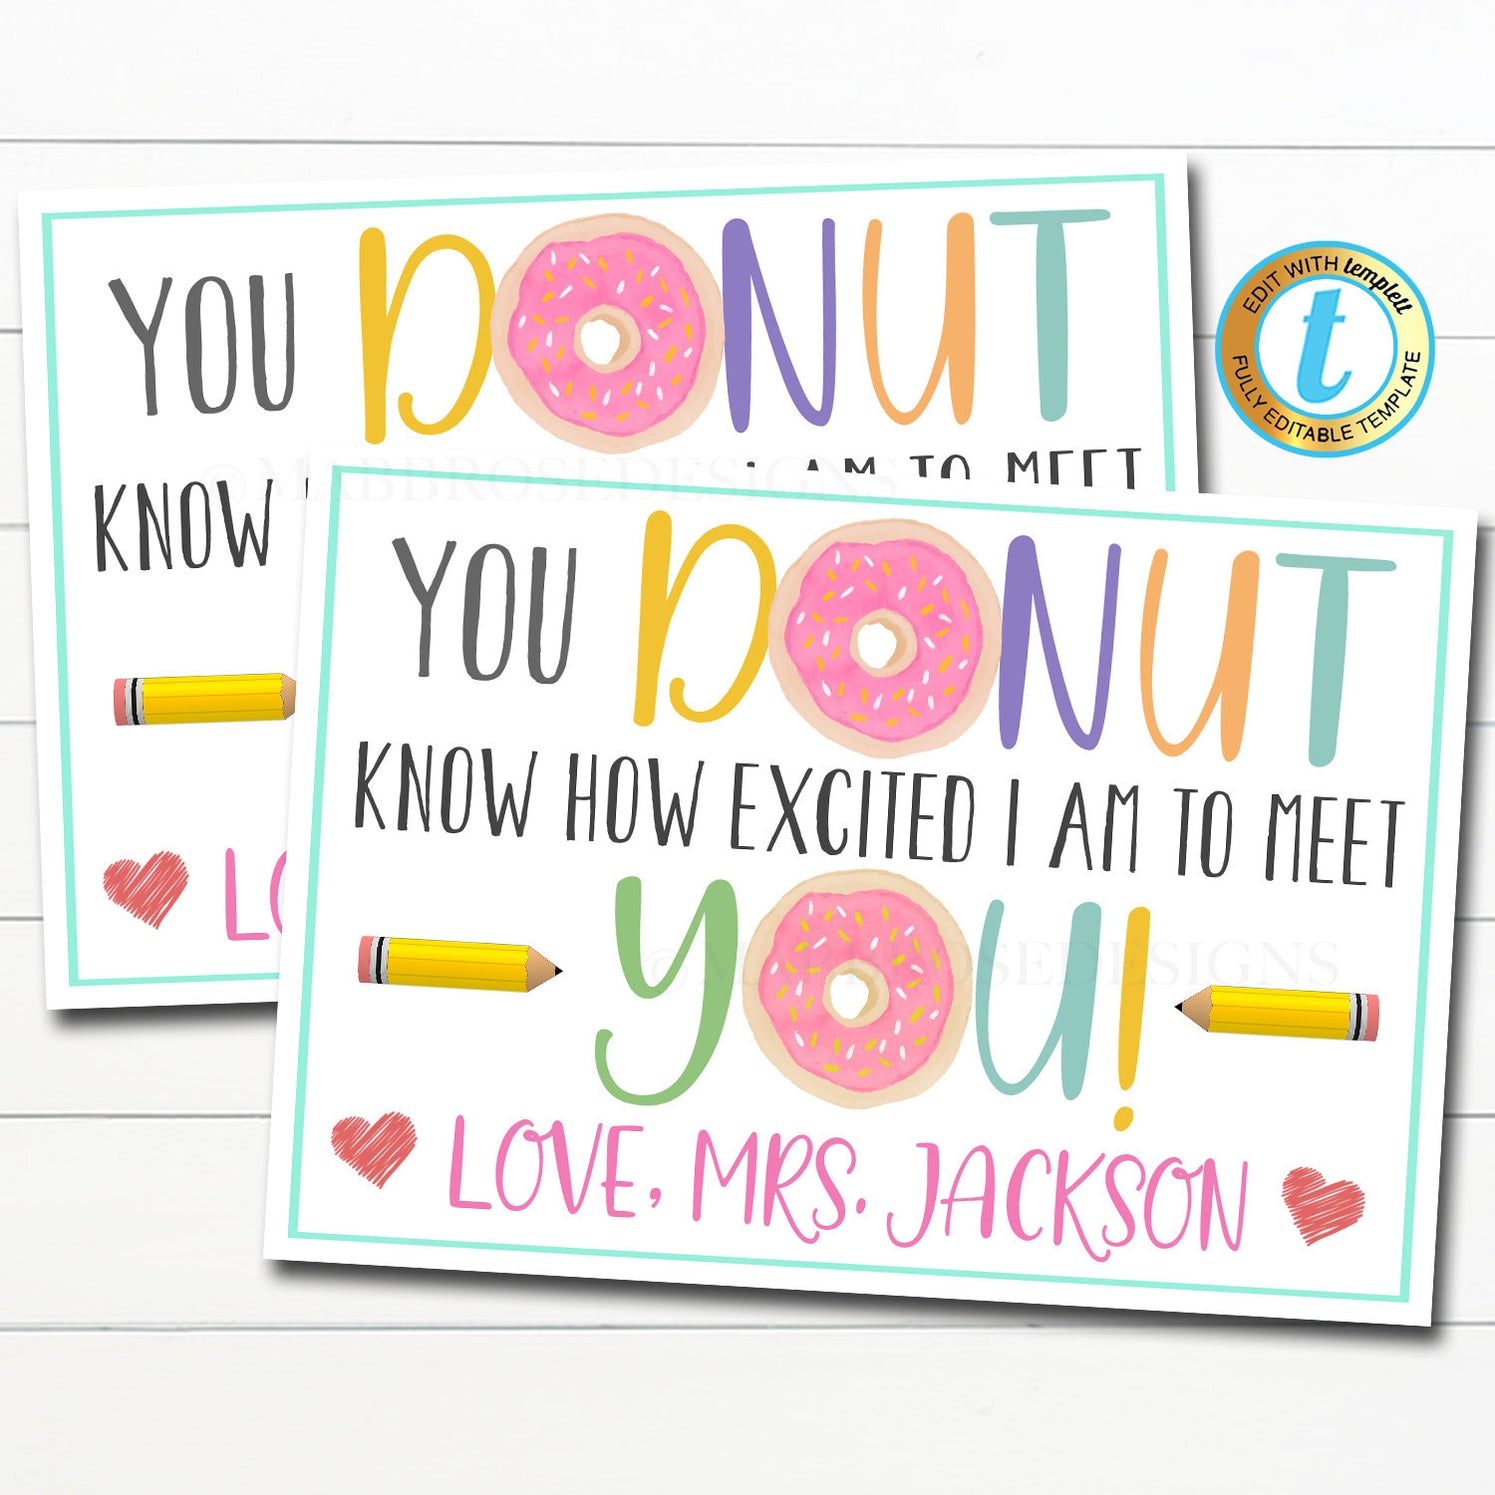 YOU DONUT
I AM TO MEET
KNOW
LO
EDIT WITH templett
t
FULLY EDITABLE TEMPLATE
©MABBROSEDESIGNS
YOU DONUT
KNOW HOW EXCITED I AM TO MEET
YOU!
©MABBROSEDESIGNS
LOVE, MRS. JACKSON